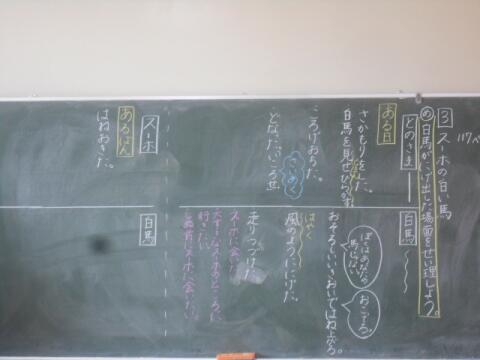 117ペ
③ スーホの白い馬
め 白馬がにげ出した場面をせい理しよう。
とのさま
白馬
ある日
さかもりをした。
白馬を見せびらかす
おそろしいいきおいではね上がる。
ぼくはあなたの
馬じゃない
おこってる。
ころげおちた。
はやく
風のようににげた。
どなった。
走りつづけた。
スーホに会いたい
大すきなスーホのところに
行きたい。
しぬ前にスーホに会いたい
スーホ
白馬
あるばん
はねおきた。